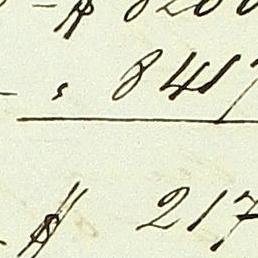 - $ 8200
- " 8417
- $ 217